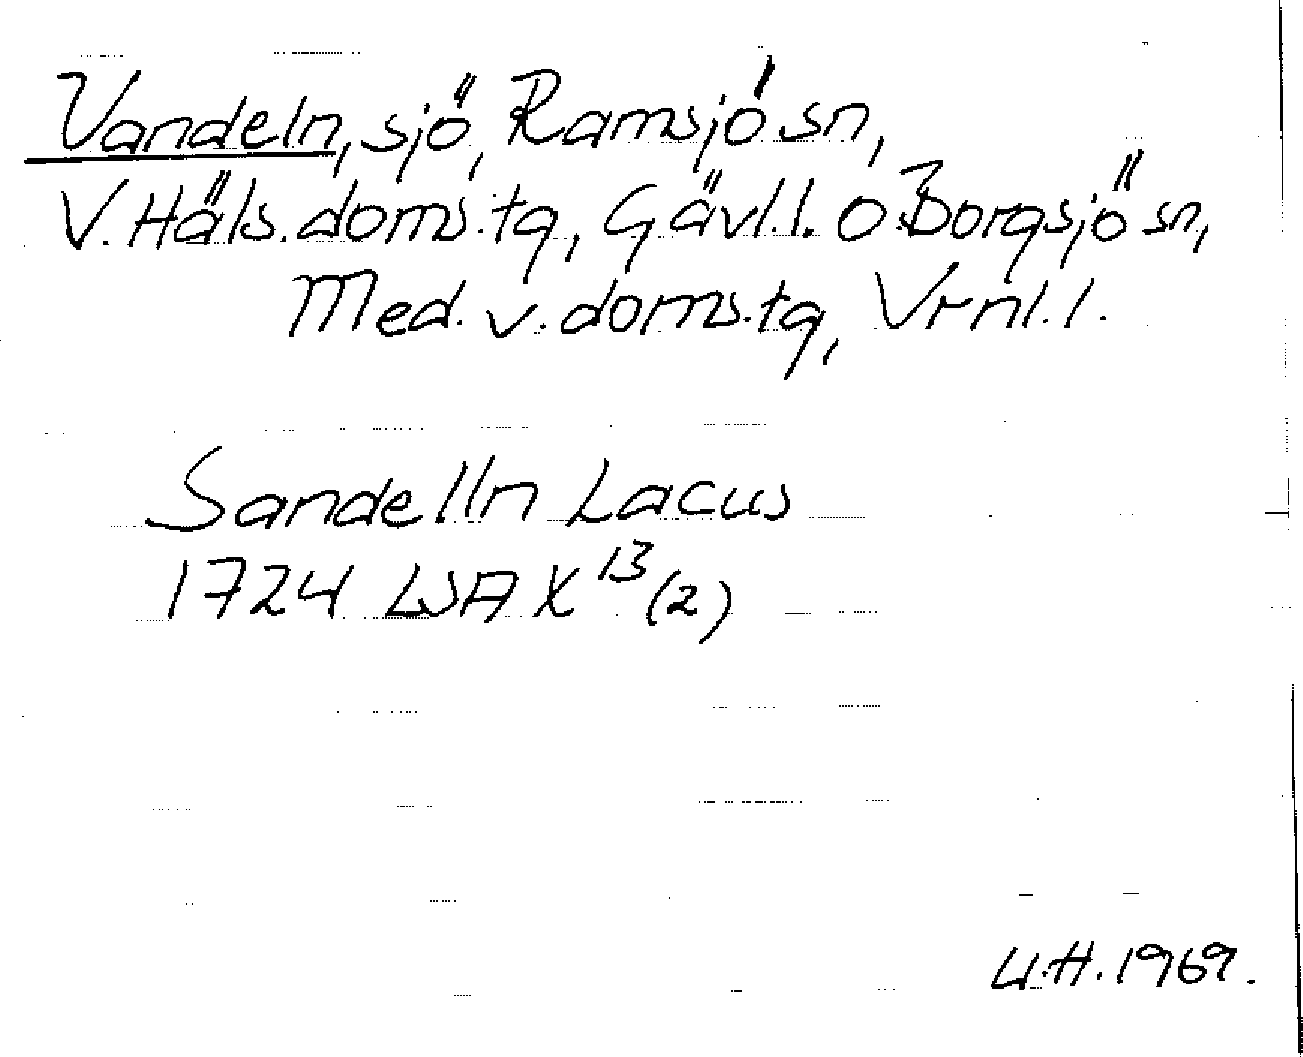 Vandeln, sjö, Ramsjö sn,
V. Häls. doms.tg, Gävl.l. o Borgsjö sn,
Med. v. doms.tg, Vrnl.l.
Sandelln Lacus
1724 LSA X 13 (2)
U.H. 1969.